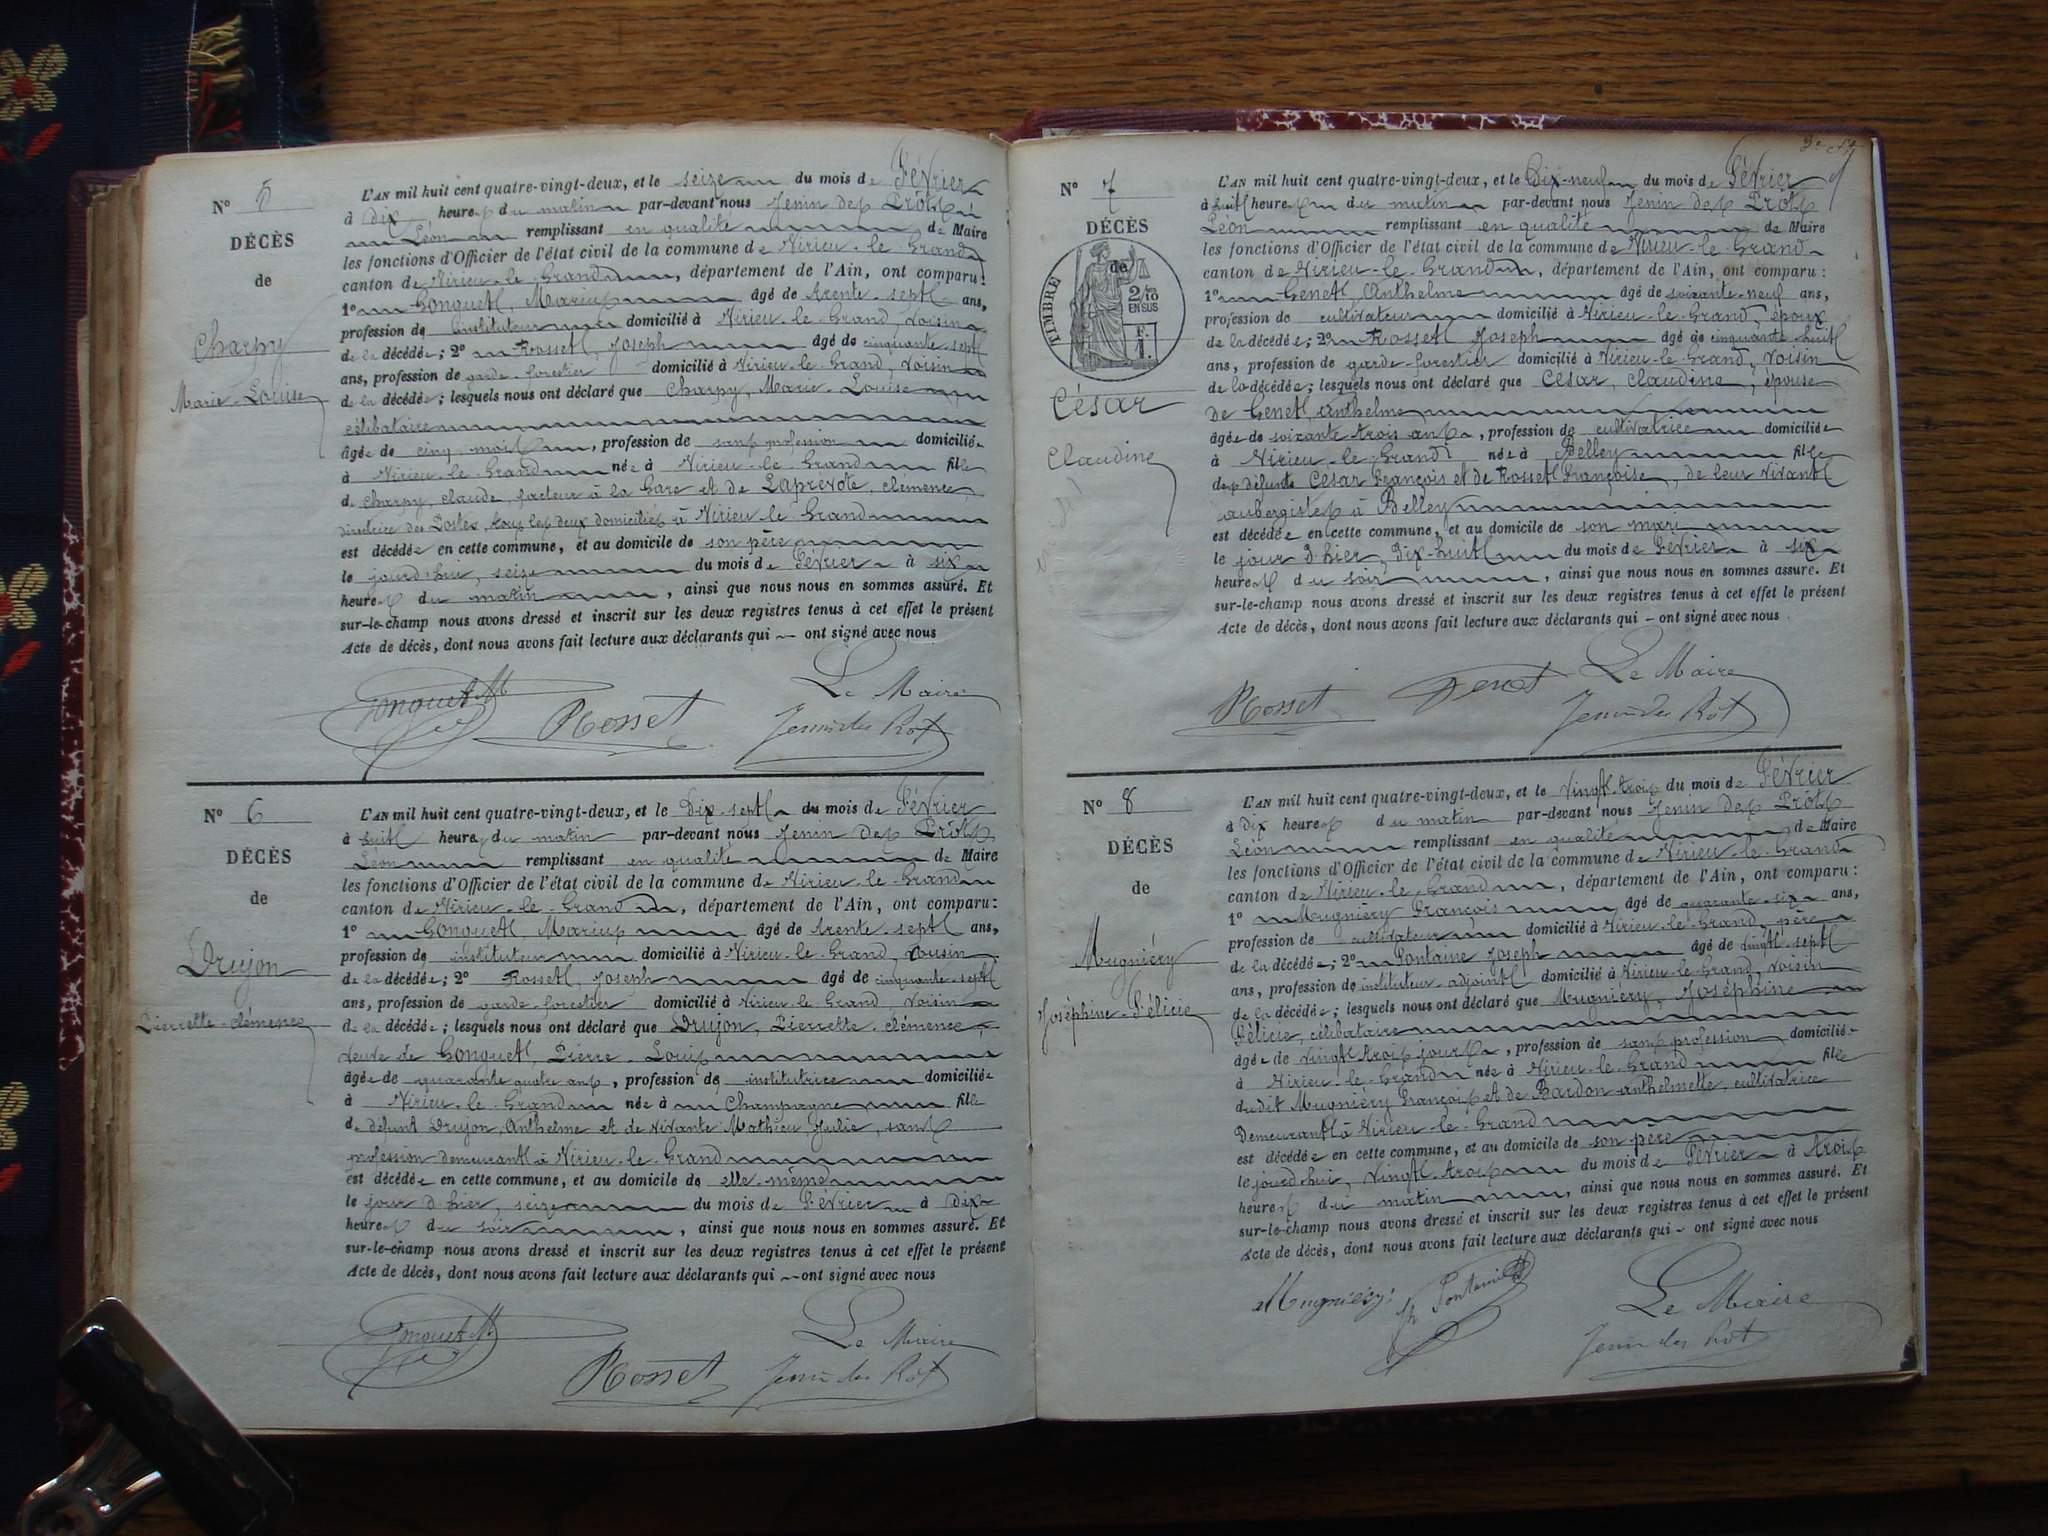 N° 5
DÉCÈS
de
Charpy
Marie-Louise
L'AN mil huit cent quatre-vingt-deux, et le seize du mois de Février
à Dix heures du matin par-devant nous Jenin des Prôts
Léon remplissant en qualité de Maire
les fonctions d'Officier de l'état civil de la commune de Virieu-le-Grand
canton de Virieu-le-Grand, département de l'Ain, ont comparu:
1° Gonguet, Marius âgé de trente-sept ans,
profession de instituteur domicilié à Virieu-le-Grand, voisin
de la décédée; 2° Rosset, Joseph âgé de cinquante-sept
ans, profession de garde-forestier domicilié à Virieu-le-Grand, voisin
de la décédée; lesquels nous ont déclaré que Charpy, Marie-Louise
célibataire
âgée de cinq mois, profession de sans profession domiciliée
à Virieu-le-Grand née à Virieu-le-Grand fille
de Charpy, Claude, facteur à la Gare et de Laprévote, Clémence
directrice des Postes, tous les deux domiciliés à Virieu-le-Grand
est décédée en cette commune, et au domicile de son père
le jourd'hui, seize du mois de Février à six
heures du matin, ainsi que nous nous en sommes assuré. Et
sur-le-champ nous avons dressé et inscrit sur les deux registres tenus à cet effet le présent
Acte de décès, dont nous avons fait lecture aux déclarants qui ont signé avec nous
Le Maire
Gonguet M Rosset Jenin des Rôt
N° 6
DÉCÈS
de
Drujon
Pierrette-Clémence
L'AN mil huit cent quatre-vingt-deux, et le Dix-sept du mois de Février
à huit heures du matin par-devant nous Jenin des Prôts
Léon remplissant en qualité de Maire
les fonctions d'Officier de l'état civil de la commune de Virieu-le-Grand
canton de Virieu-le-Grand, département de l'Ain, ont comparu:
1° Gonguet, Marius âgé de trente-sept ans,
profession de instituteur domicilié à Virieu-le-Grand, cousin
de la décédée; 2° Rosset, Joseph âgé de cinquante-sept
ans, profession de garde-forestier domicilié à Virieu-le-Grand, voisin
de la décédée; lesquels nous ont déclaré que Drujon, Pierrette-Clémence,
veuve de Gonguet, Pierre-Louis
âgée de quarante quatre ans, profession de institutrice domiciliée
à Virieu-le-Grand née à Champagne fille
de défunt Drujon, Anthelme et de vivante Mathieu, Julie, sans
profession demeurant à Virieu-le-Grand
est décédée en cette commune, et au domicile de elle-même
le jour d'hier, seize du mois de Février à Dix
heures du soir, ainsi que nous nous en sommes assuré. Et
sur-le-champ nous avons dressé et inscrit sur les deux registres tenus à cet effet le présent
Acte de décès, dont nous avons fait lecture aux déclarants qui ont signé avec nous
Le Maire
Gonguet M Rosset Jenin des Rôt
N° 7
DÉCÈS
de
TIMBRE
2/10
EN SUS
F.
1.
César
Claudine
L'AN mil huit cent quatre-vingt-deux, et le Dix-neuf du mois de Février
à huit heures du matin par-devant nous Jenin des Prôts
Léon remplissant en qualité de Maire
les fonctions d'Officier de l'état civil de la commune de Virieu-le-Grand
canton de Virieu-le-Grand, département de l'Ain, ont comparu:
1° Genet, Anthelme âgé de soixante-neuf ans,
profession de cultivateur domicilié à Virieu-le-Grand, époux
de la décédée; 2° Rosset Joseph âgé de cinquante-huit
ans, profession de garde-forestier domicilié à Virieu-le-Grand, voisin
de la décédée; lesquels nous ont déclaré que César, Claudine, épouse
de Genet, Anthelme
âgée de soixante trois ans, profession de cultivatrice domiciliée
à Virieu-le-Grand née à Belley fille
des défunts César François et de Rosset Françoise, de leur vivant
aubergistes à Belley
est décédée en cette commune, et au domicile de son mari
le jour d'hier, Dix-huit du mois de Février à six
heures du soir, ainsi que nous nous en sommes assuré. Et
sur-le-champ nous avons dressé et inscrit sur les deux registres tenus à cet effet le présent
Acte de décès, dont nous avons fait lecture aux déclarants qui ont signé avec nous
Le Maire
Rosset Genet Jenin des Rôt
N° 8
DÉCÈS
de
Mugniéry
Joséphine-Félicie
L'AN mil huit cent quatre-vingt-deux, et le Vingt-trois du mois de Février
à Dix heures du matin par-devant nous Jenin des Prôts
Léon remplissant en qualité de Maire
les fonctions d'Officier de l'état civil de la commune de Virieu-le-Grand
canton de Virieu-le-Grand, département de l'Ain, ont comparu:
1° Mugniéry François âgé de quarante-six ans,
profession de cultivateur domicilié à Virieu-le-Grand, père
de la décédée; 2° Pontaine Joseph âgé de vingt-sept
ans, profession de instituteur-adjoint domicilié à Virieu-le-Grand, voisin
de la décédée; lesquels nous ont déclaré que Mugniéry, Joséphine
Félicie, célibataire
âgée de vingt trois jours, profession de sans profession domiciliée
à Virieu-le-Grand née à Virieu-le-Grand fille
dudit Mugniéry François et de Bardon Anthelmette, cultivatrice
Demeurant à Virieu-le-Grand
est décédée en cette commune, et au domicile de son père
le jourd'hui, vingt-trois du mois de Février à trois
heures du matin, ainsi que nous nous en sommes assuré. Et
sur-le-champ nous avons dressé et inscrit sur les deux registres tenus à cet effet le présent
Acte de décès, dont nous avons fait lecture aux déclarants qui ont signé avec nous
Mugniéry Jh Pontaine Le Maire
Jenin des Rôt